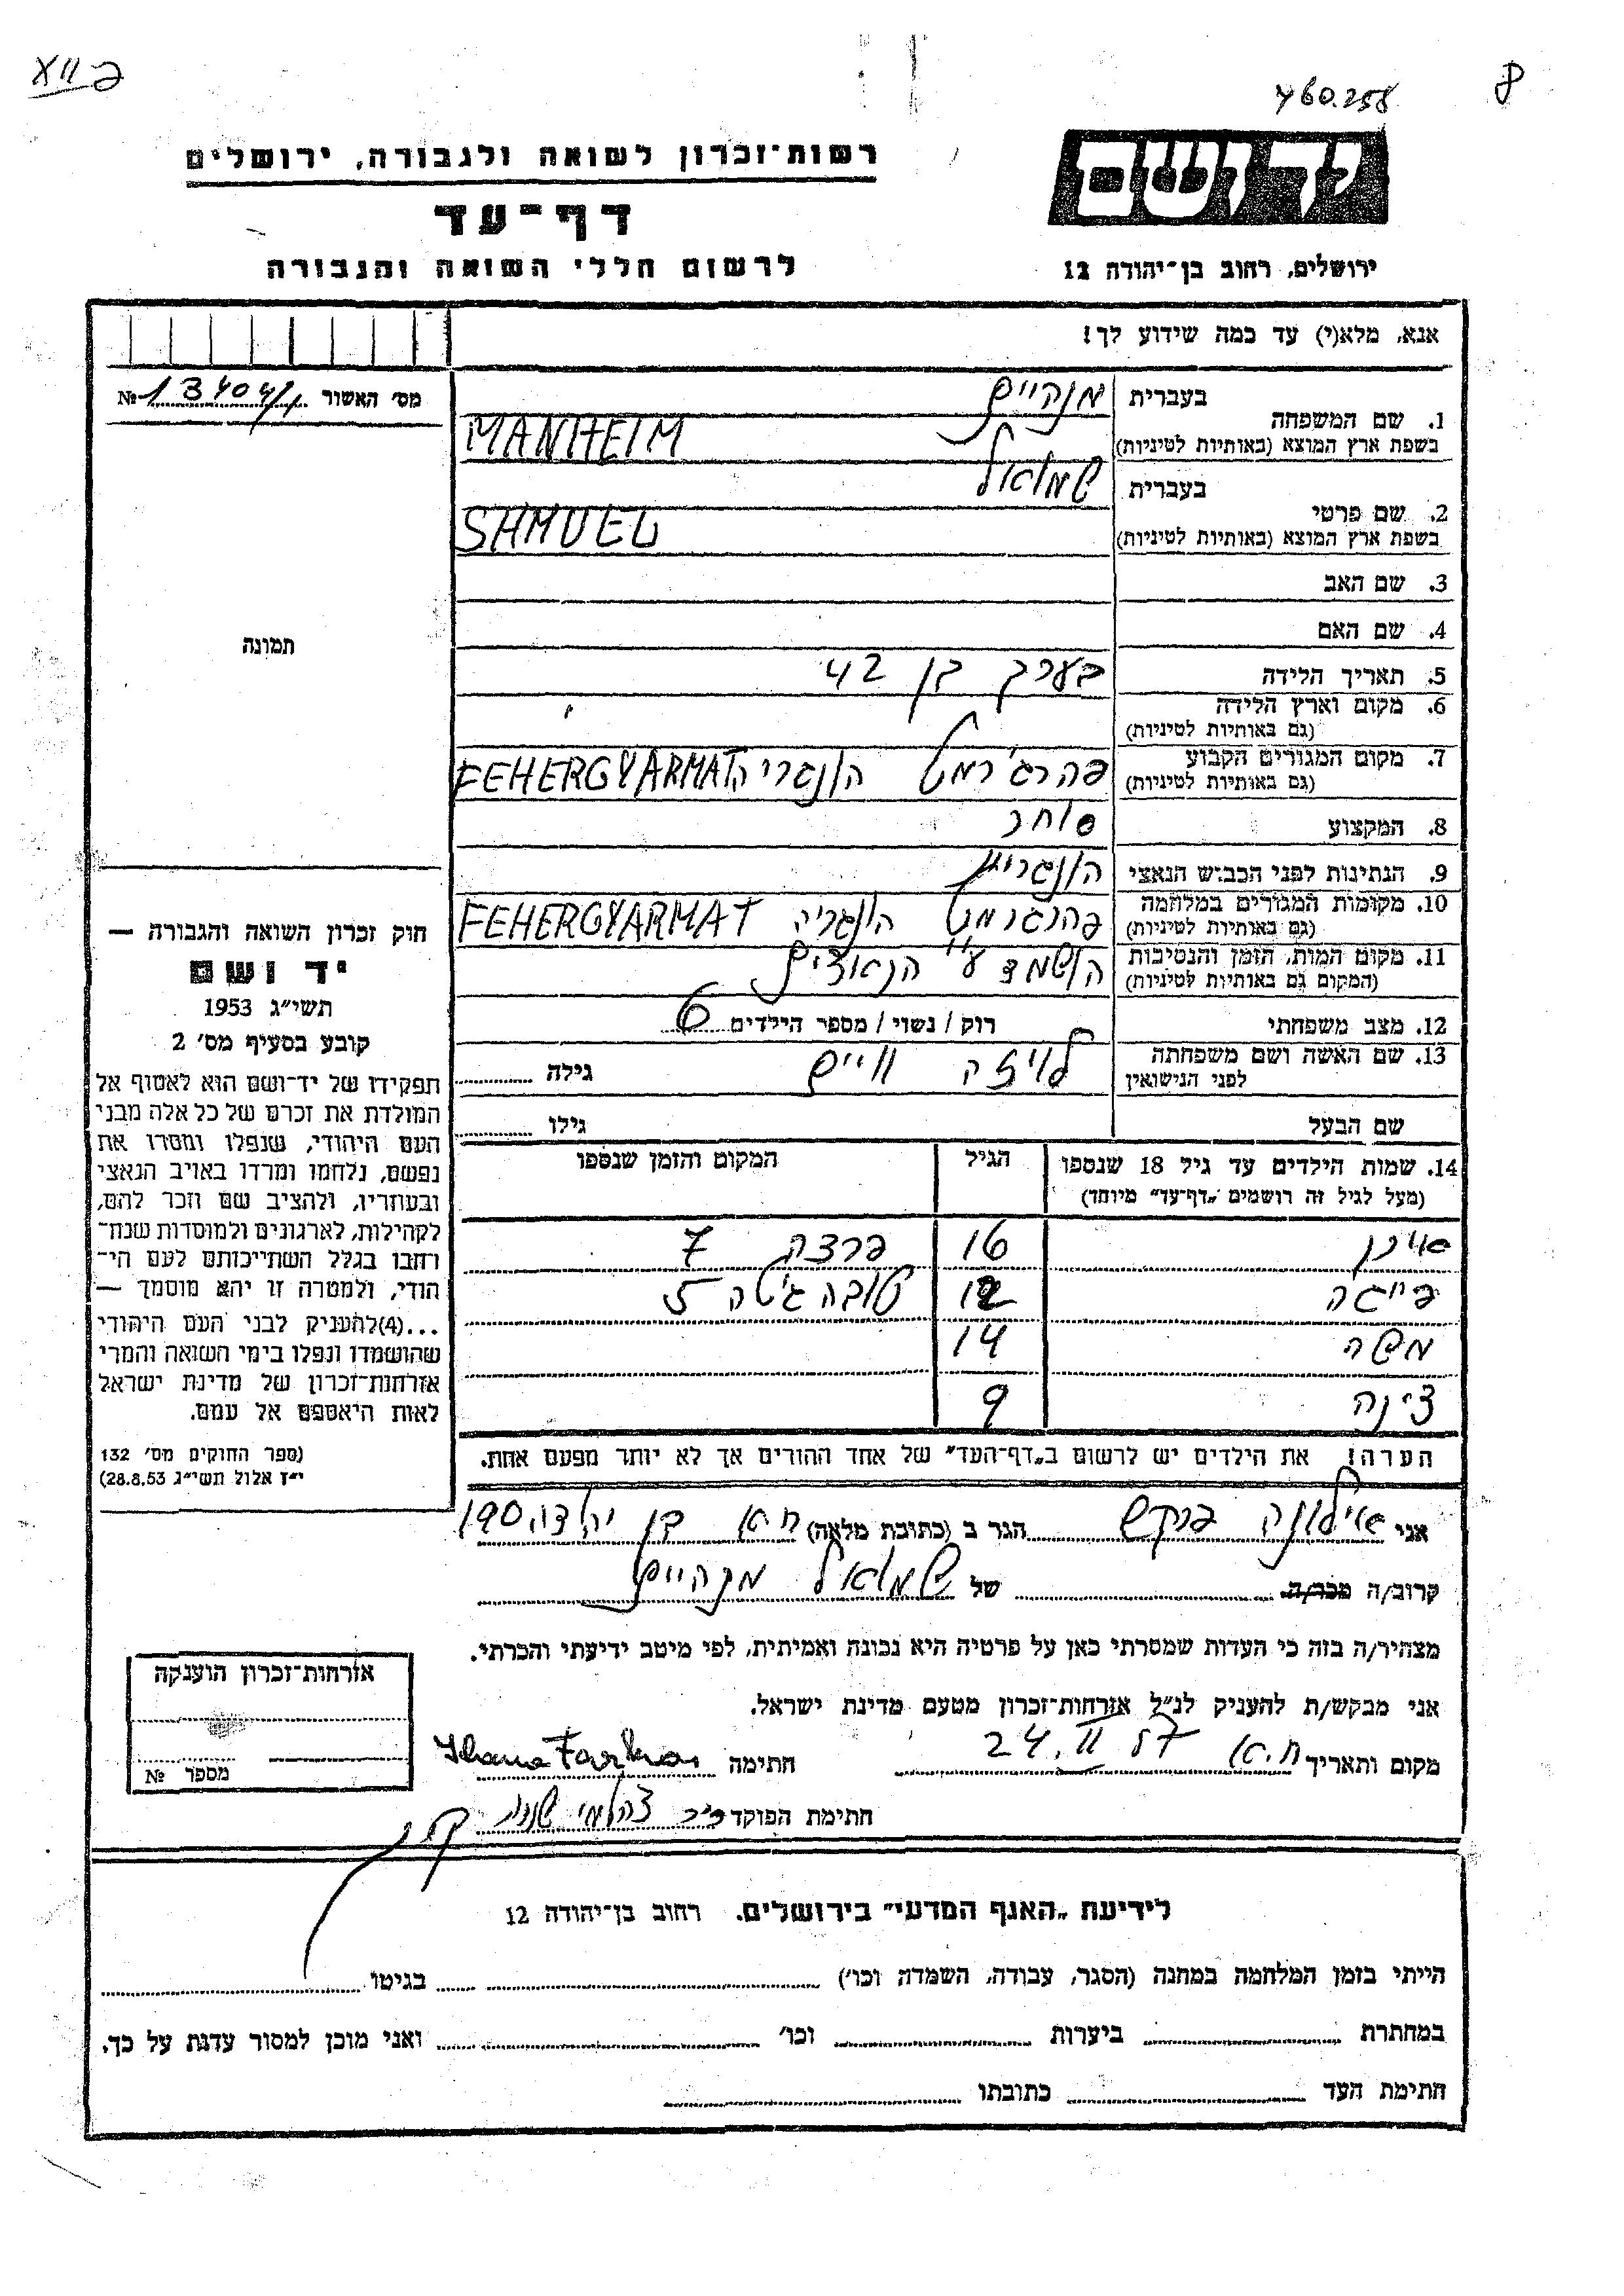 XII פ
460.258
8
יד ושם
רשות־זכרון לשואה ולגבורה, ירושלים
דף־עד
לרשום חללי השואה והגבורה
ירושלים, רחוב בן־יהודה 12
אנא, מלא(י) עד כמה שידוע לך!
מס׳ האשור № 13404/1
בעברית מנהיים
1. שם המשפחה
בשפת ארץ המוצא (באותיות לטיניות) MANHEIM
בעברית שמואל
2. שם פרטי
בשפת ארץ המוצא (באותיות לטיניות) SHMUEL
3. שם האב
4. שם האם
תמונה
5. תאריך הלידה בערך בן 42
6. מקום וארץ הלידה
(גם באותיות לטיניות)
7. מקום המגורים הקבוע
(גם באותיות לטיניות) פהרג׳רמט הונגריה FEHERGYARMAT
8. המקצוע סוחר
9. הנתינות לפני הכבוש הנאצי הונגרית
10. מקומות המגורים במלחמה
(גם באותיות לטיניות) הונגריה FEHERGYARMAT
11. מקום המות, הזמן והנסיבות
(המקום גם באותיות לטיניות) הושמד ע״י הנאצים
12. מצב משפחתי רוק / נשוי / מספר הילדים 6
13. שם האשה ושם משפחתה
לפני הנישואין לויזה ווייס גילה
שם הבעל גילו
14. שמות הילדים עד גיל 18 שנספו הגיל המקום והזמן שנספו
(מעל לגיל זה רושמים „דף־עד” מיוחד)
16 פרצה 7
פייגה 12 טובה גיטה 5
משה 14
צינה 9
הערה! את הילדים יש לרשום ב„דף־העד” של אחד ההורים אך לא יותר מפעם אחת.
חוק זכרון השואה והגבורה —
יד ושם
תשי״ג 1953
קובע בסעיף מס׳ 2
תפקידו של יד־ושם הוא לאסוף אל
המולדת את זכרם של כל אלה מבני
העם היהודי, שנפלו ומסרו את
נפשם, נלחמו ומרדו באויב הנאצי
ובעוזריו, ולהציב שם וזכר להם,
לקהילות, לארגונים ולמוסדות שנח־
רחבו בגלל השתייכותם לעם הי־
הודי, ולמטרה זו יהא מוסמך —
...(4)להעניק לבני העם היהודי
שהושמדו ונפלו בימי השואה והמרי
אזרחות־זכרון של מדינת ישראל
לאות היאספם אל עמם.
(ספר החוקים מס׳ 132
י״ז אלול תשי״ג 28.8.53)
אני אילונה פרקש הגר ב (כתובת מלאה) ת.א בן יהודה 190
קרוב/ה מכר/ה של שמואל מנהיים
מצהיר/ה בזה כי העדות שמסרתי כאן על פרטיה היא נכונה ואמיתית, לפי מיטב ידיעתי והכרתי.
אני מבקש/ת להעניק לנ״ל אזרחות־זכרון מטעם מדינת ישראל.
מקום ותאריך ת.א 24.II 57 חתימה Ilona Farkas
חתימת הפוקד
אזרחות־זכרון הוענקה
מספר №
לידיעת „האגף המדעי” בירושלים, רחוב בן־יהודה 12
הייתי בזמן המלחמה במחנה (הסגר, עבודה, השמדה וכו׳) בגיטו
במחתרת ביערות וכו׳ ואני מוכן למסור עדות על כך.
חתימת העד כתובתו